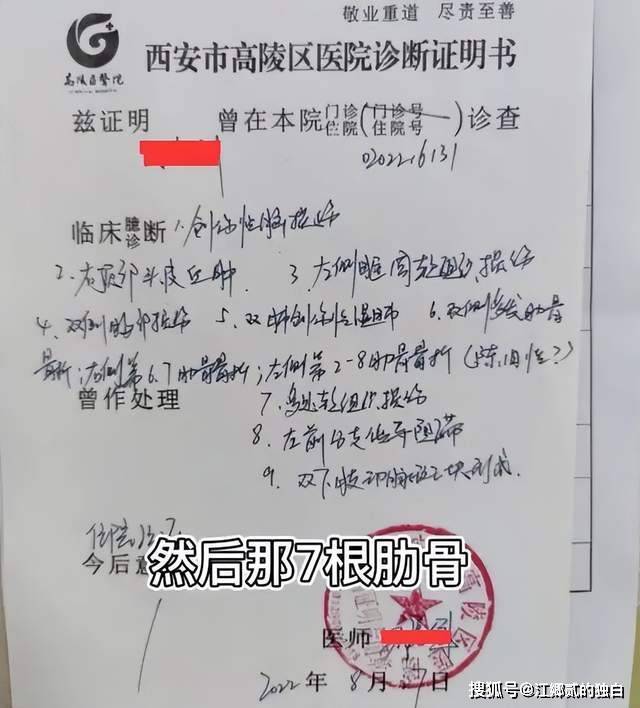 敬业重道 尽责至善
高陵区医院
西安市高陵区医院诊断证明书
兹证明 曾在本院门诊住院(门诊号住院号)诊查
02022.6131
临床臆诊断 1.创伤性脑损伤
2.右顶部头皮血肿 3.左侧眼周软组织损伤
4.双侧胸部损伤 5.双肺创伤性湿肺 6.双侧多发肋骨
骨折;右侧第6.7肋骨骨折;左侧第2-8肋骨骨折(陈旧性?)
曾作处理 7.多处软组织损伤
8.左前分支传导阻滞
9.双下肢动脉斑块形成.
住院治疗
今后意
然后那7根肋骨
医师
2022年8月27日
搜狐号@江鄉贰的独白